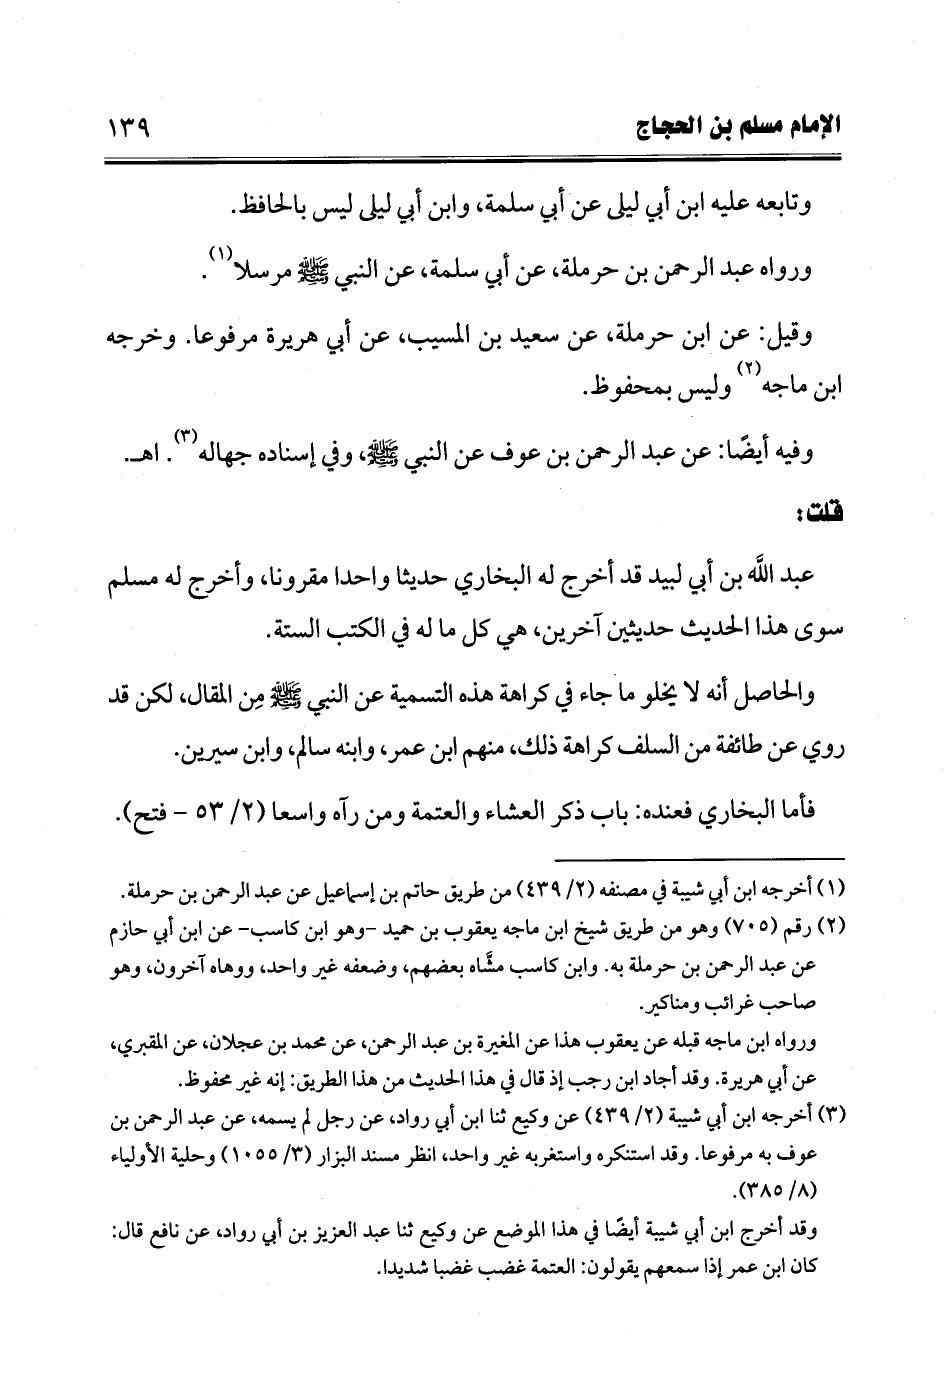 الإمام مسلم بن الحجاج ١٣٩
وتابعه عليه ابن أبي ليلى عن أبي سلمة، وابن أبي ليلى ليس بالحافظ.
ورواه عبد الرحمن بن حرملة، عن أبي سلمة، عن النبي ﷺ مرسلا(١).
وقيل: عن ابن حرملة، عن سعيد بن المسيب، عن أبي هريرة مرفوعا. وخرجه
ابن ماجه(٢) وليس بمحفوظ.
وفيه أيضًا: عن عبد الرحمن بن عوف عن النبي ﷺ، وفي إسناده جهاله(٣). اهـ.
قلت:
عبد اللَّه بن أبي لبيد قد أخرج له البخاري حديثا واحدا مقرونا، وأخرج له مسلم
سوى هذا الحديث حديثين آخرين، هي كل ما له في الكتب الستة.
والحاصل أنه لا يخلو ما جاء في كراهة هذه التسمية عن النبي ﷺ مِن المقال، لكن قد
روي عن طائفة من السلف كراهة ذلك، منهم ابن عمر، وابنه سالم، وابن سيرين.
فأما البخاري فعنده: باب ذكر العشاء والعتمة ومن رآه واسعا (٢/ ٥٣ – فتح).
(١) أخرجه ابن أبي شيبة في مصنفه (٢/ ٤٣٩) من طريق حاتم بن إسماعيل عن عبد الرحمن بن حرملة.
(٢) رقم (٧٠٥) وهو من طريق شيخ ابن ماجه يعقوب بن حميد -وهو ابن كاسب- عن ابن أبي حازم
عن عبد الرحمن بن حرملة به. وابن كاسب مشَّاه بعضهم، وضعفه غير واحد، ووهاه آخرون، وهو
صاحب غرائب ومناكير.
ورواه ابن ماجه قبله عن يعقوب هذا عن المغيرة بن عبد الرحمن، عن محمد بن عجلان، عن المقبري،
عن أبي هريرة. وقد أجاد ابن رجب إذ قال في هذا الحديث من هذا الطريق: إنه غير محفوظ.
(٣) أخرجه ابن أبي شيبة (٢/ ٤٣٩) عن وكيع ثنا ابن أبي رواد، عن رجل لم يسمه، عن عبد الرحمن بن
عوف به مرفوعا. وقد استنكره واستغربه غير واحد، انظر مسند البزار (٣/ ١٠٥٥) وحلية الأولياء
(٨/ ٣٨٥).
وقد أخرج ابن أبي شيبة أيضًا في هذا الموضع عن وكيع ثنا عبد العزيز بن أبي رواد، عن نافع قال:
كان ابن عمر إذا سمعهم يقولون: العتمة غضب غضبا شديدا.